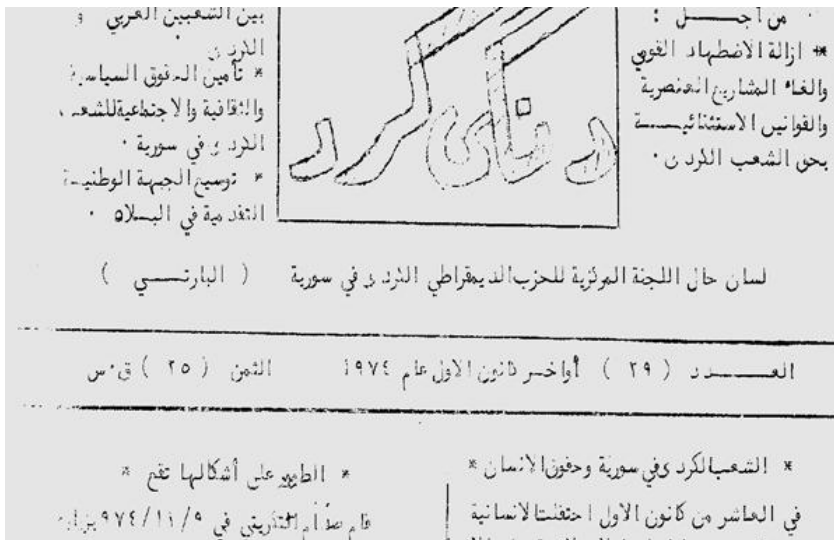 من أجـــل :
* ازالة الاضطهاد القومي
والغاء المشاريع العنصرية
والقوانين الاستثنائيـــة
بحق الشعب الكردي .
دنگی کرد
بين الشعبين العربي و
الكردي
* تأمين الحقوق السياسية
والثقافية والاجتماعية للشعب
الكردي في سورية .
* توسيع الجبهة الوطنيـة
التقدمية في البـلاد .
لسان حال اللجنة المركزية للحزب الديمقراطي الكردي في سورية ( البارتـــي )
العـــــدد ( ٢٩ ) أواخـر كانون الاول عام ١٩٧٤ الثمن ( ٢٥ ) ق.س
* الشعب الكردي في سورية وحقوق الانسان *
في العاشر من كانون الاول احتفلت الانسانية
* الطيور على أشكالها تقع *
قام صدام التكريتي في ٩٧٤/١١/٩